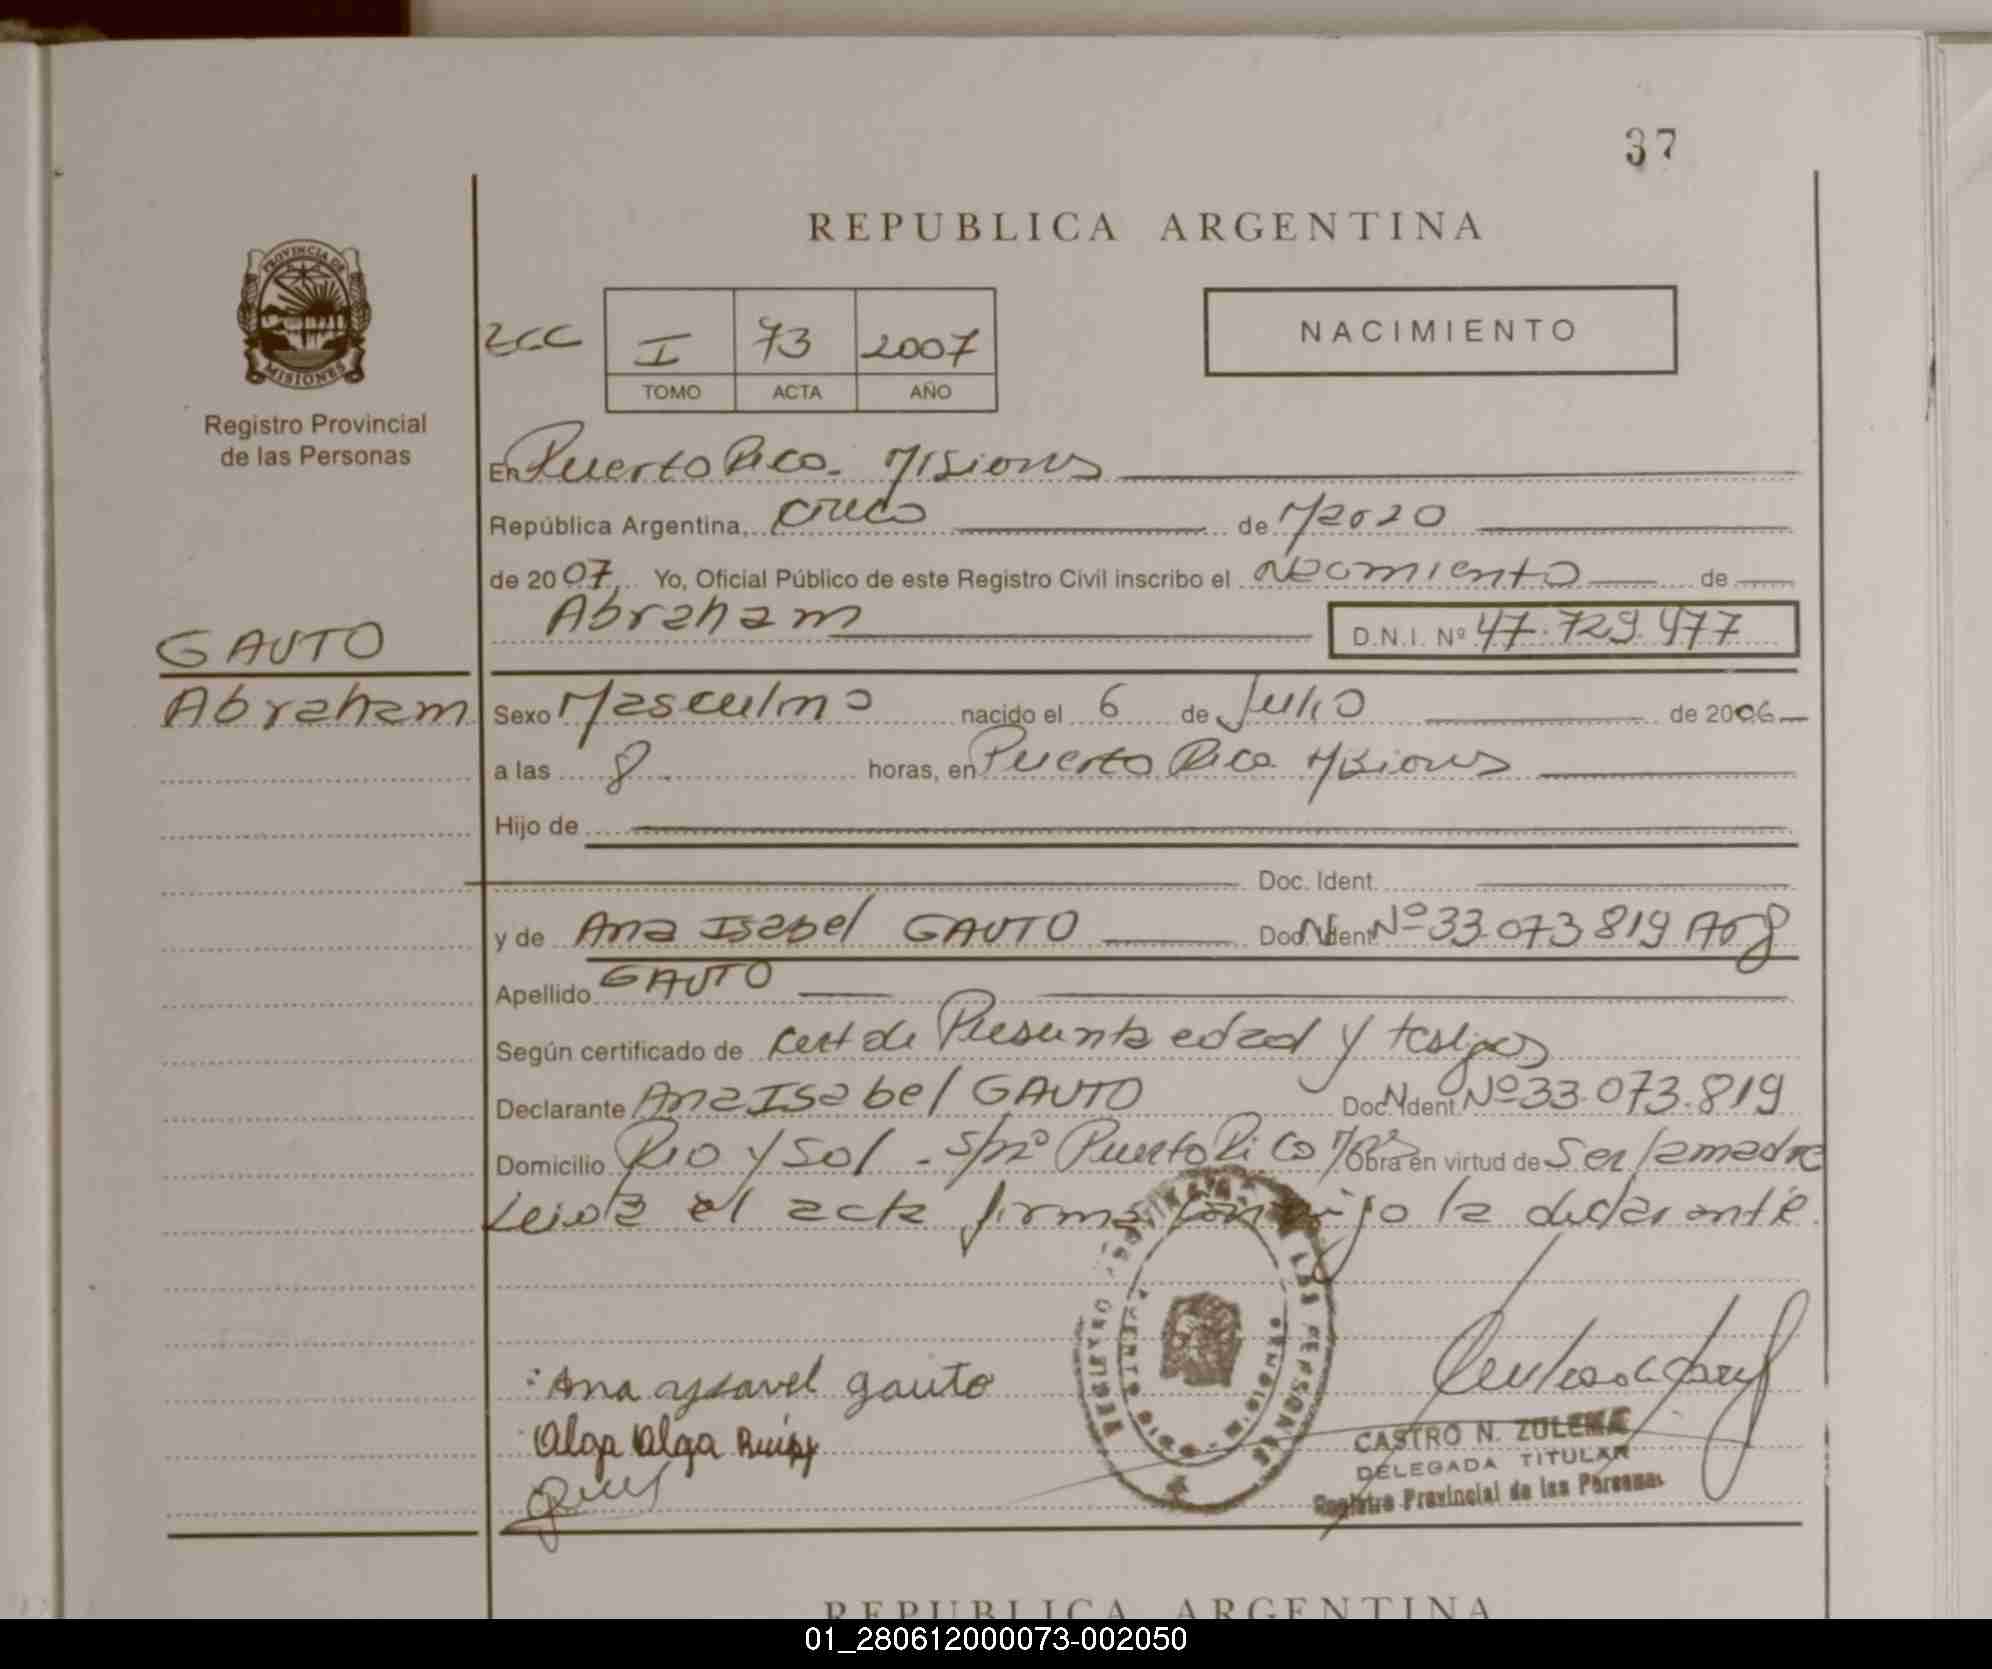 37
REPUBLICA ARGENTINA
PROVINCIA DE
MISIONES
Registro Provincial
de las Personas
I 73 2007
TOMO ACTA AÑO
NACIMIENTO
En Puerto Rico. Misiones
República Argentina, cinco de Marzo
de 2007 Yo, Oficial Público de este Registro Civil inscribo el Nacimiento de
Abraham D.N.I. Nº 47.729.477
GAUTO
Abraham
Sexo Masculino nacido el 6 de Julio de 2006
a las 8. horas, en Puerto Rico Misiones
Hijo de
Doc. Ident.
y de Ana Isabel GAUTO Doc. Ident. Nº 33.073.819 Arg
Apellido GAUTO
Según certificado de Cert de Presunta edad y testigos
Declarante Ana Isabel GAUTO Doc. Ident. Nº 33.073.819
Domicilio Rio y Sol - s/nº Puerto Rico Obra en virtud de Ser la madre
Leida el acta firma conmigo la declarante.
Ana aysavel gauto
Olga Olga
CASTRO N. ZULEMA
DELEGADA TITULAR
Registro Provincial de las Personas
REPUBLICA ARGENTINA
01_280612000073-002050